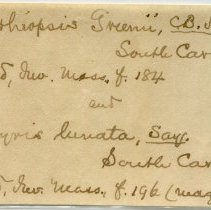 rhiopsis Greenii, C.B.
South Car
d, Inv. Mass. f. 184
and
yris lunata, Say.
South Car
d, Inv. Mass., f. 196 (mag